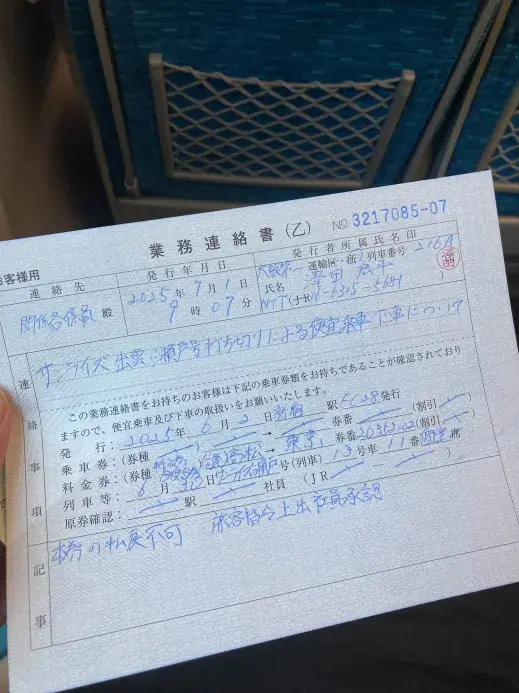 業務連絡書(乙) NO 3217085-07
お客様用
連絡先 発行年月日 発行者所属氏名印
関係各係員 殿 2025年7月1日 9時07分
運輸区・所 列車番号 216A
氏名
NTT(JR)
連絡事項
サンライズ出雲・瀬戸号打ち切りによる便宜乗車 下車について
この業務連絡書をお持ちのお客様は下記の乗車券類をお持ちであることが確認されており
ますので、便宜乗車及び下車の取扱いをお願いいたします。
発行:2025年6月2日新宿駅 発行
乗車券:(券種 )→ 券番 (割引 )
料金券:(券種 )高松→東京 券番20352-02(割引 )
列車等:6月30日サンライズ瀬戸号(列車)13号車11番 席
原券確認: 駅 社員(JR )
記事
本券の払戻不可 旅客指令上出社員承認